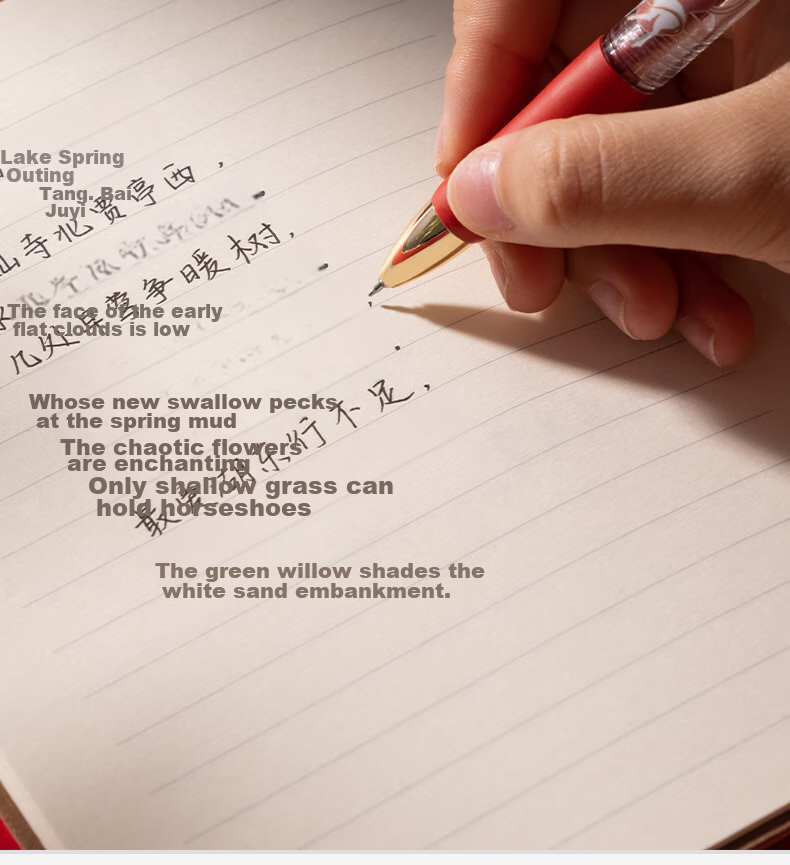 Lake Spring
Outing
Tang. Bai
Juyi
山寺北贾亭西，
The face of the early
flat clouds is low
几处早莺争暖树，
Whose new swallow pecks
at the spring mud
The chaotic flowers
are enchanting
Only shallow grass can
hold horseshoes
最爱湖东行不足，
The green willow shades the
white sand embankment.